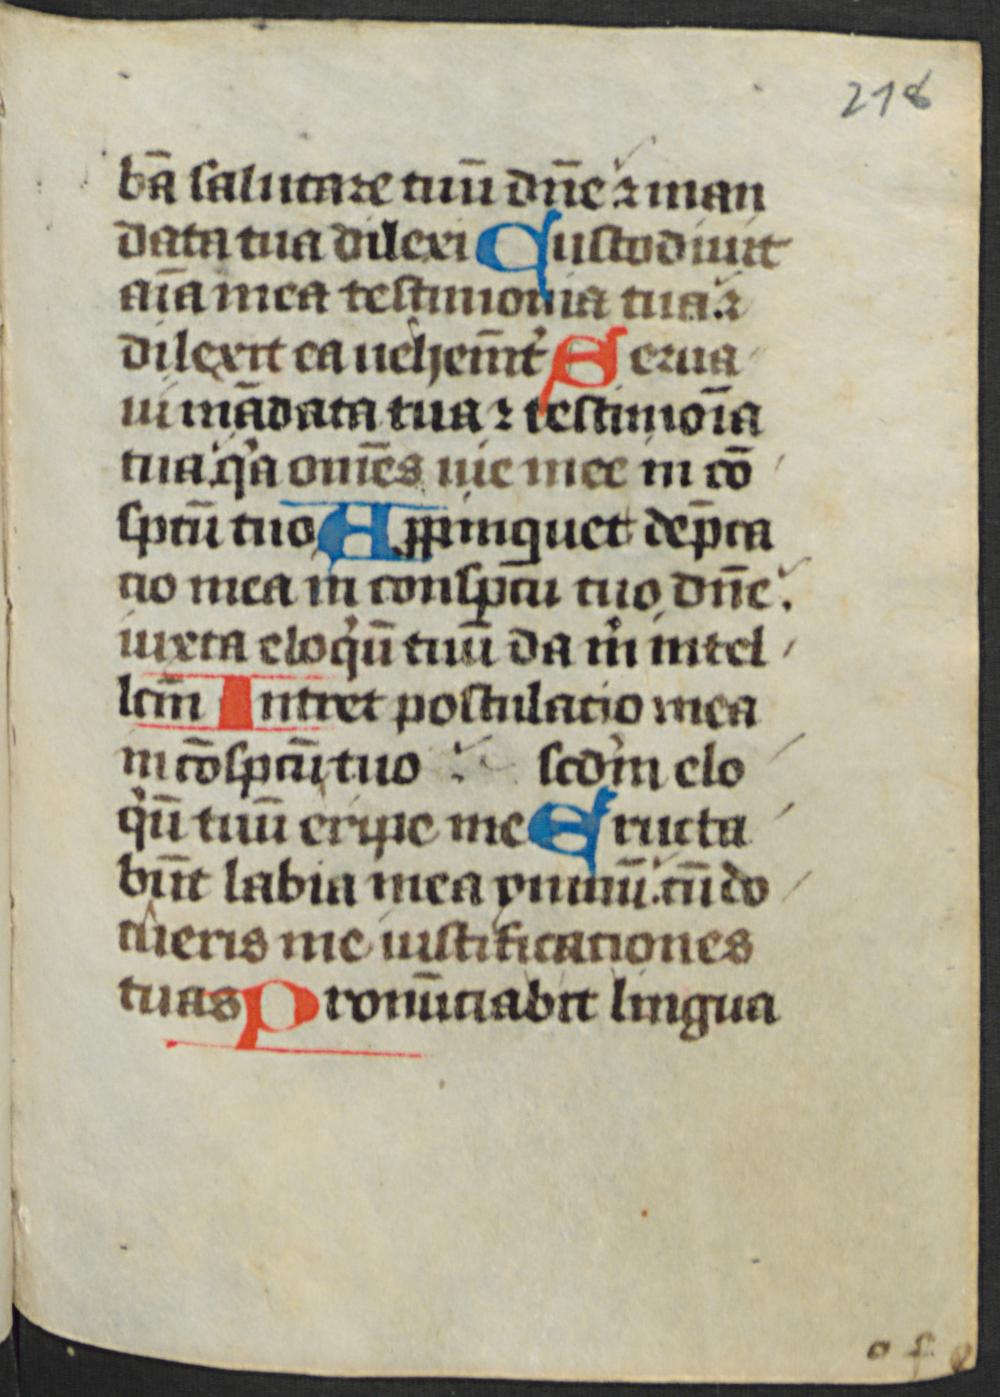 218
bā salutare tuū dn̄e ⁊ man
data tua dilexi Custodiuit
aīa mea testimonia tua ⁊
dilexit ea uehem̄t᷑ Serua
ui mādata tua ⁊ testimoīa
tua q̇a om̄es uie mee in cō
spc̄tu tuo Apꝓinquet dep̄ca
tio mea in consp̄ctu tuo dn̄e
iuxta eloq̇ū tuū da ṁ intel
lc̄m Intret postulatio mea
in cōspc̄tu tuo scd̄m elo
q̇ū tuū eripe me Eructa
būt labia mea ymnū cū do
cueris me iustificationes
tuas Pronūciabit lingua